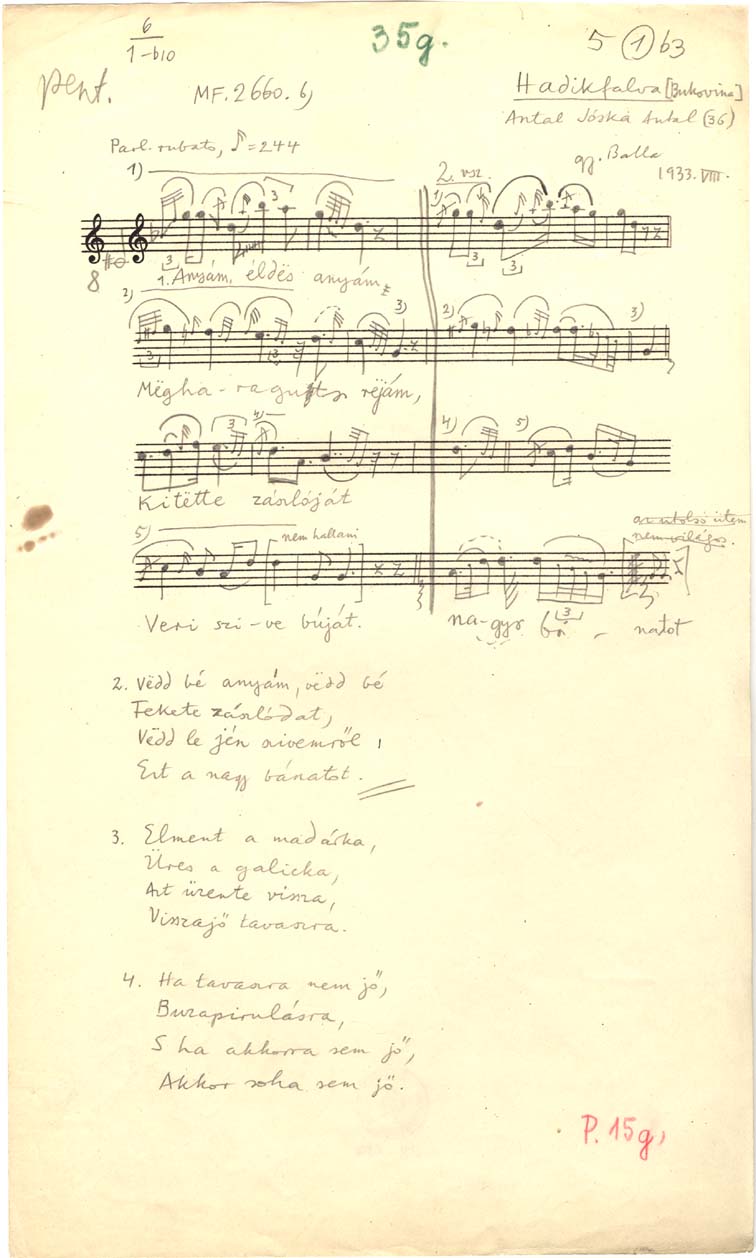 6
1-b10
35g.
5 ① b3
pent.
MF. 2660. b)
Hadikfalva [Bukovina]
Antal Jóska Antal (36)
Parl. rubato, ♪=244
gy. Balla
1933. VIII.
1)
2. vsz.
3
8
1. Anyám, eldës anyám,
2)
3)
2)
3)
Mëgha-ragutts rëjám,
4)
4)
5)
Kitëtte zászlóját
5)
nem hallani
az utolsó ütem
nem világos.
Veri szi-ve búját.
na-gyo bá - natot
2. Vëdd bé anyám, vëdd bé
Fekete zászlódat,
Vëdd le jén szivemről
Ezt a nagy bánatot.
3. Elment a madárka,
Üres a galicka,
Azt üzente vissza,
Visszajő tavaszra.
4. Ha tavaszra nem jő,
Buzapirulásra,
S ha akkorra sem jő,
Akkor soha sem jő.
P. 15g,